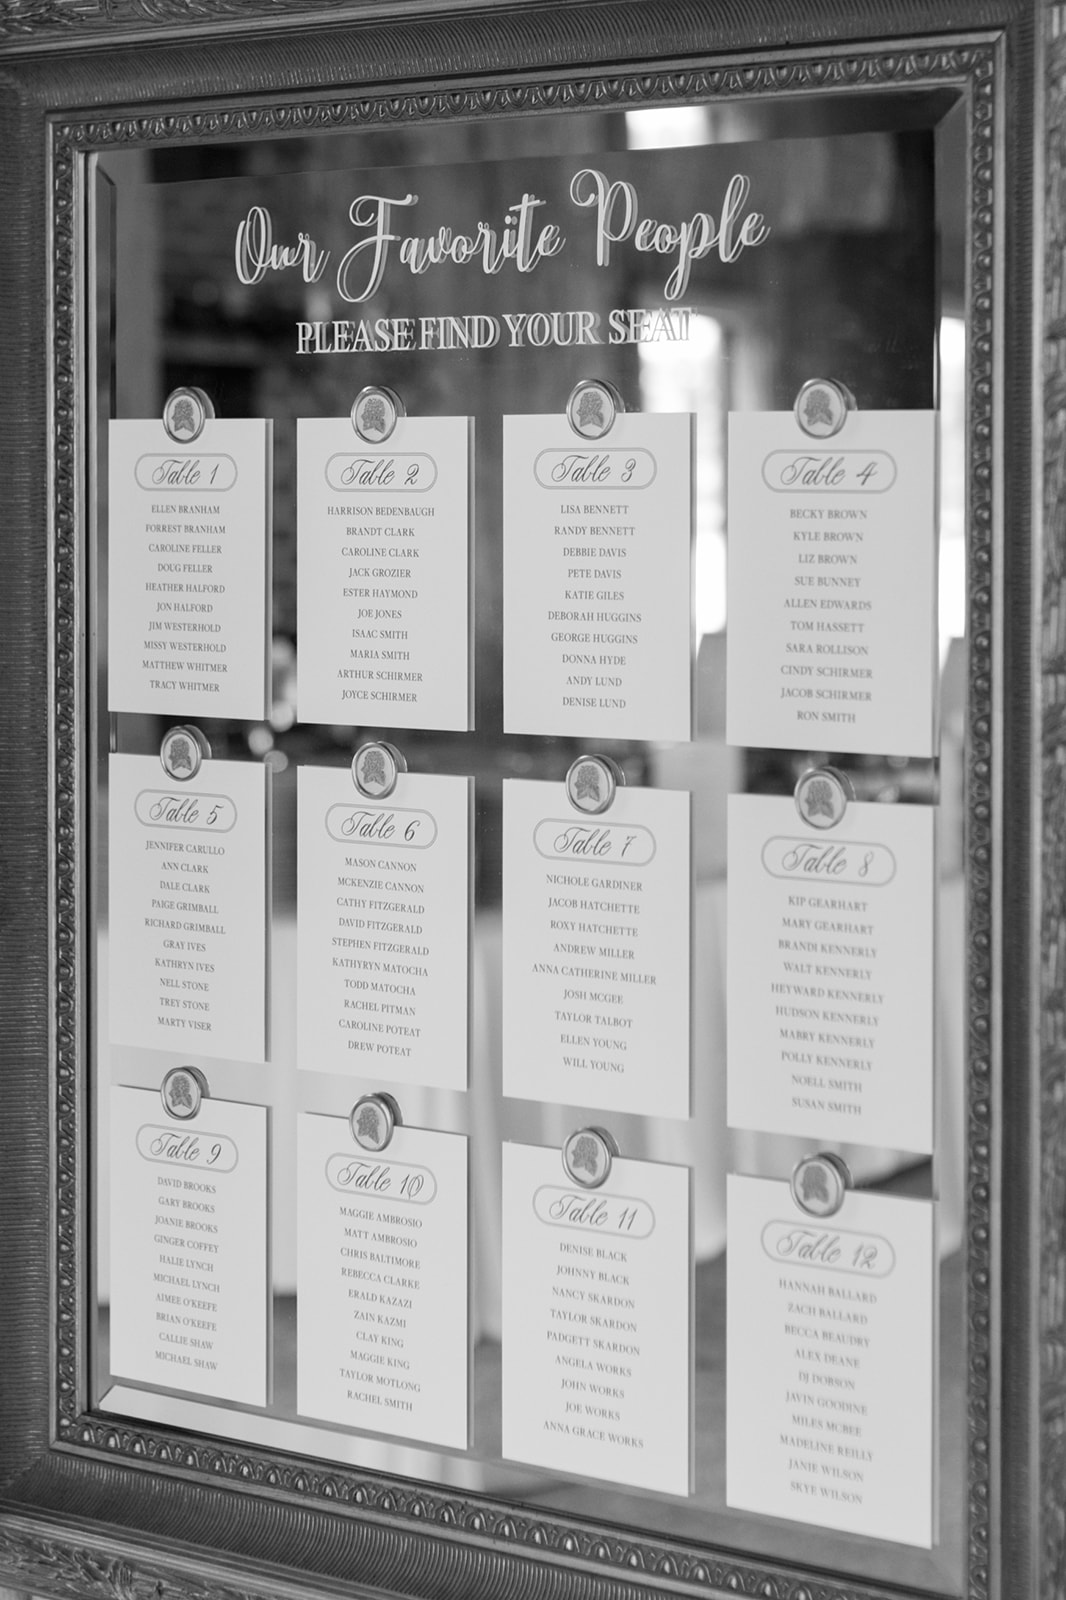 Our Favorite People
PLEASE FIND YOUR SEAT
Table 1
ELLEN BRANHAM
FORREST BRANHAM
CAROLINE FELLER
DOUG FELLER
HEATHER HALFORD
JON HALFORD
JIM WESTERHOLD
MISSY WESTERHOLD
MATTHEW WHITMER
TRACY WHITMER
Table 2
HARRISON BEDENBAUGH
BRANDT CLARK
CAROLINE CLARK
JACK GROZIER
ESTER HAYMOND
JOE JONES
ISAAC SMITH
MARIA SMITH
ARTHUR SCHIRMER
JOYCE SCHIRMER
Table 3
LISA BENNETT
RANDY BENNETT
DEBBIE DAVIS
PETE DAVIS
KATIE GILES
DEBORAH HUGGINS
GEORGE HUGGINS
DONNA HYDE
ANDY LUND
DENISE LUND
Table 4
BECKY BROWN
KYLE BROWN
LIZ BROWN
SUE BUNNEY
ALLEN EDWARDS
TOM HASSETT
SARA ROLLISON
CINDY SCHIRMER
JACOB SCHIRMER
RON SMITH
Table 5
JENNIFER CARULLO
ANN CLARK
DALE CLARK
PAIGE GRIMBALL
RICHARD GRIMBALL
GRAY IVES
KATHRYN IVES
NELL STONE
TREY STONE
MARTY VISER
Table 6
MASON CANNON
MCKENZIE CANNON
CATHY FITZGERALD
DAVID FITZGERALD
STEPHEN FITZGERALD
KATHYRYN MATOCHA
TODD MATOCHA
RACHEL PITMAN
CAROLINE POTEAT
DREW POTEAT
Table 7
NICHOLE GARDINER
JACOB HATCHETTE
ROXY HATCHETTE
ANDREW MILLER
ANNA CATHERINE MILLER
JOSH MCGEE
TAYLOR TALBOT
ELLEN YOUNG
WILL YOUNG
Table 8
KIP GEARHART
MARY GEARHART
BRANDI KENNERLY
WALT KENNERLY
HEYWARD KENNERLY
HUDSON KENNERLY
MABRY KENNERLY
POLLY KENNERLY
NOELL SMITH
SUSAN SMITH
Table 9
DAVID BROOKS
GARY BROOKS
JOANIE BROOKS
GINGER COFFEY
HALIE LYNCH
MICHAEL LYNCH
AIMEE O'KEEFE
BRIAN O'KEEFE
CALLIE SHAW
MICHAEL SHAW
Table 10
MAGGIE AMBROSIO
MATT AMBROSIO
CHRIS BALTIMORE
REBECCA CLARKE
ERALD KAZAZI
ZAIN KAZMI
CLAY KING
MAGGIE KING
TAYLOR MOTLONG
RACHEL SMITH
Table 11
DENISE BLACK
JOHNNY BLACK
NANCY SKARDON
TAYLOR SKARDON
PADGETT SKARDON
ANGELA WORKS
JOHN WORKS
JOE WORKS
ANNA GRACE WORKS
Table 12
HANNAH BALLARD
ZACH BALLARD
BECCA BEAUDRY
ALEX DEANE
DJ DOBSON
JAVIN GOODINE
MILES MCBEE
MADELINE REILLY
JANIE WILSON
SKYE WILSON